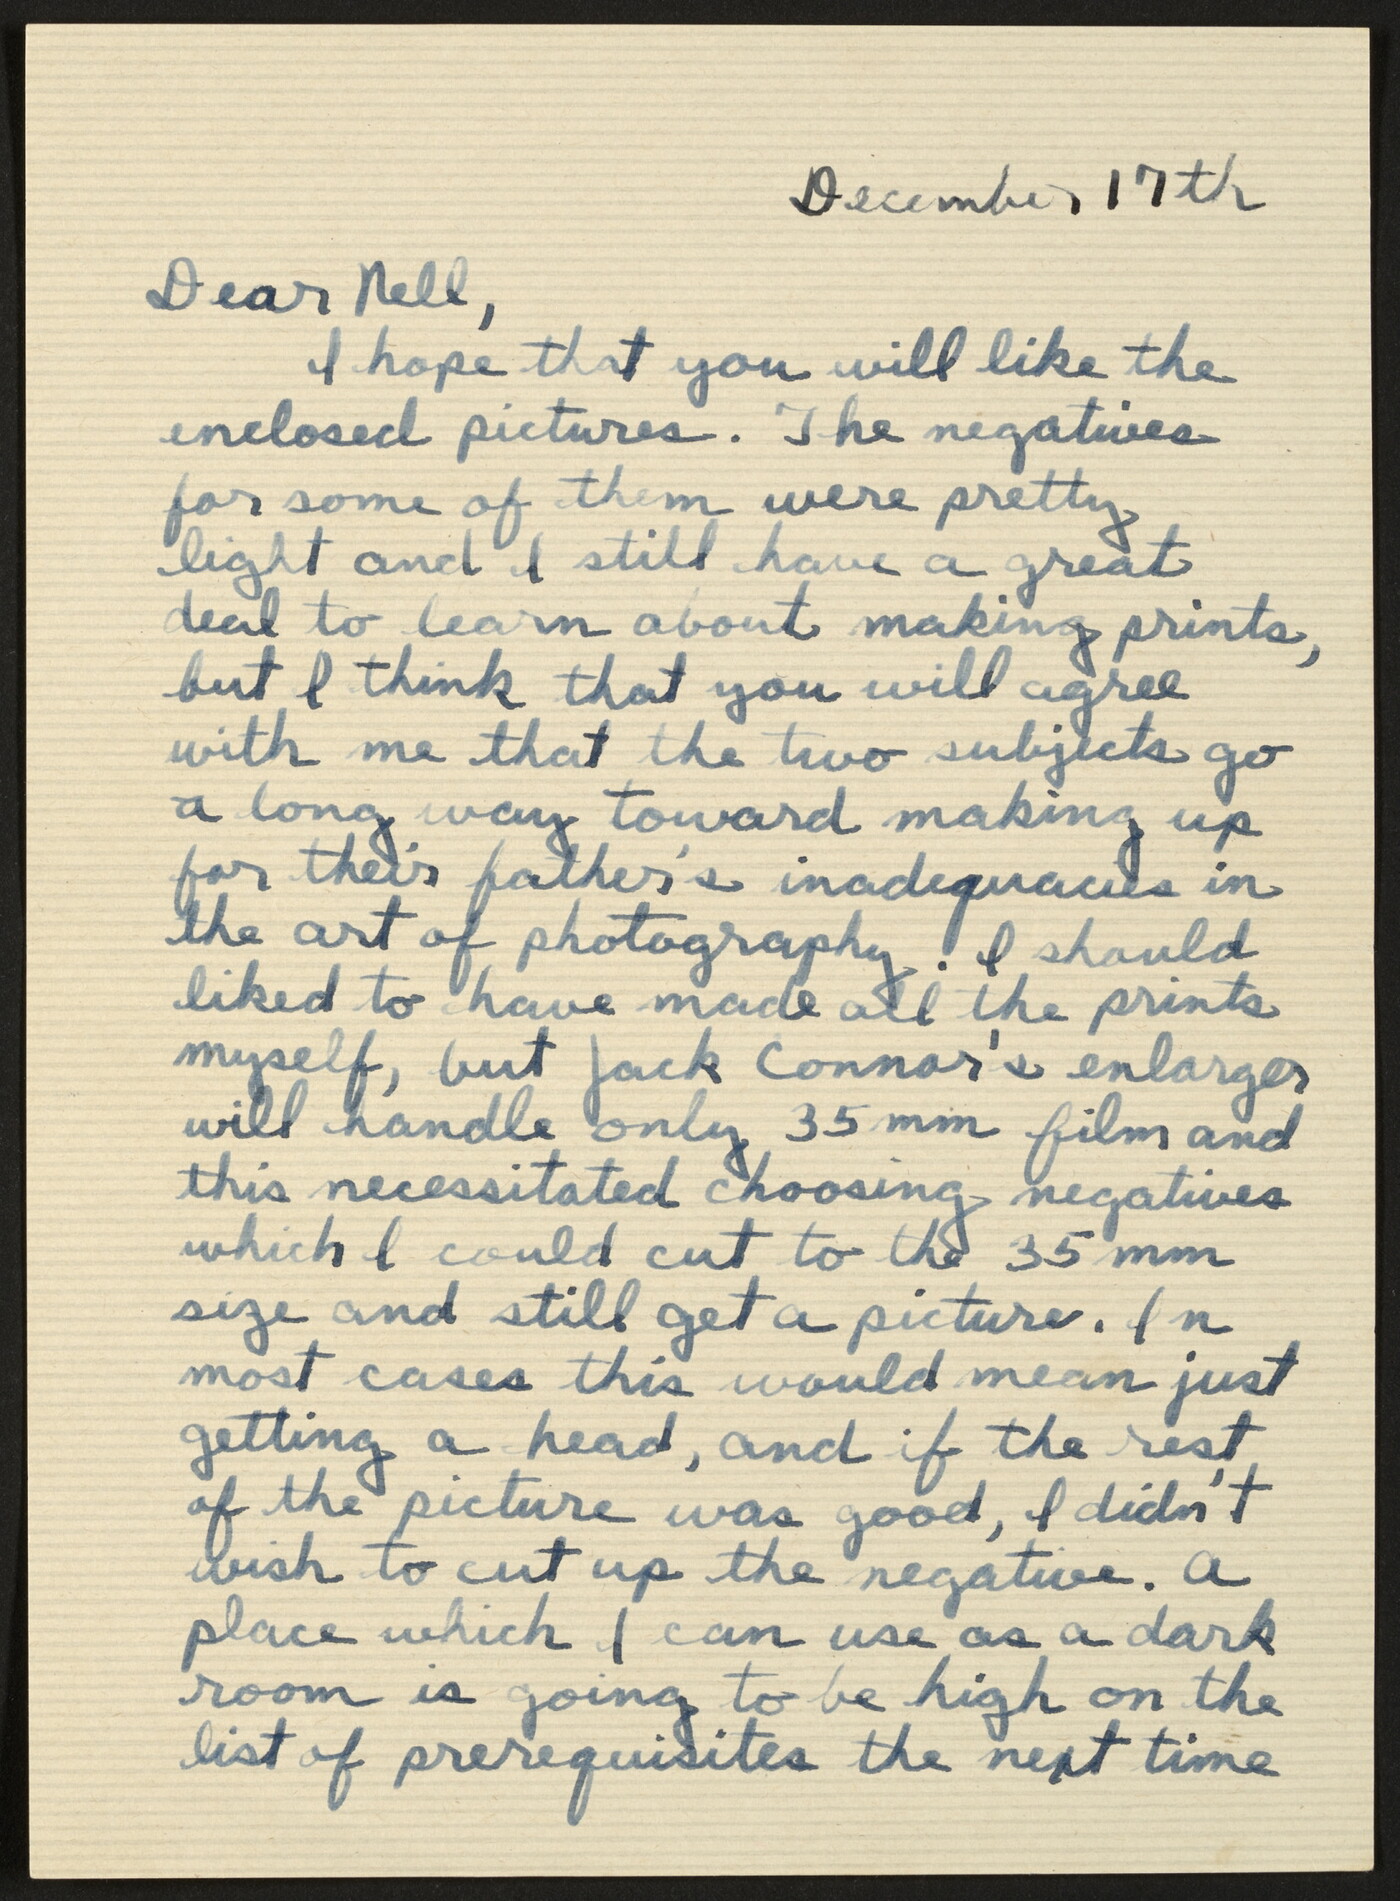 December 17th
Dear Nell,
I hope that you will like the
enclosed pictures. The negatives
for some of them were pretty
light and I still have a great
deal to learn about making prints,
but I think that you will agree
with me that the two subjects go
a long way toward making up
for their father's inadequacies in
the art of photography. I should
liked to have made all the prints
myself, but Jack Connor's enlarger
will handle only 35 mm film and
this necessitated choosing negatives
which I could cut to the 35 mm
size and still get a picture. In
most cases this would mean just
getting a head, and if the rest
of the picture was good, I didn't
wish to cut up the negative. A
place which I can use as a dark
room is going to be high on the
list of prerequisites the next time